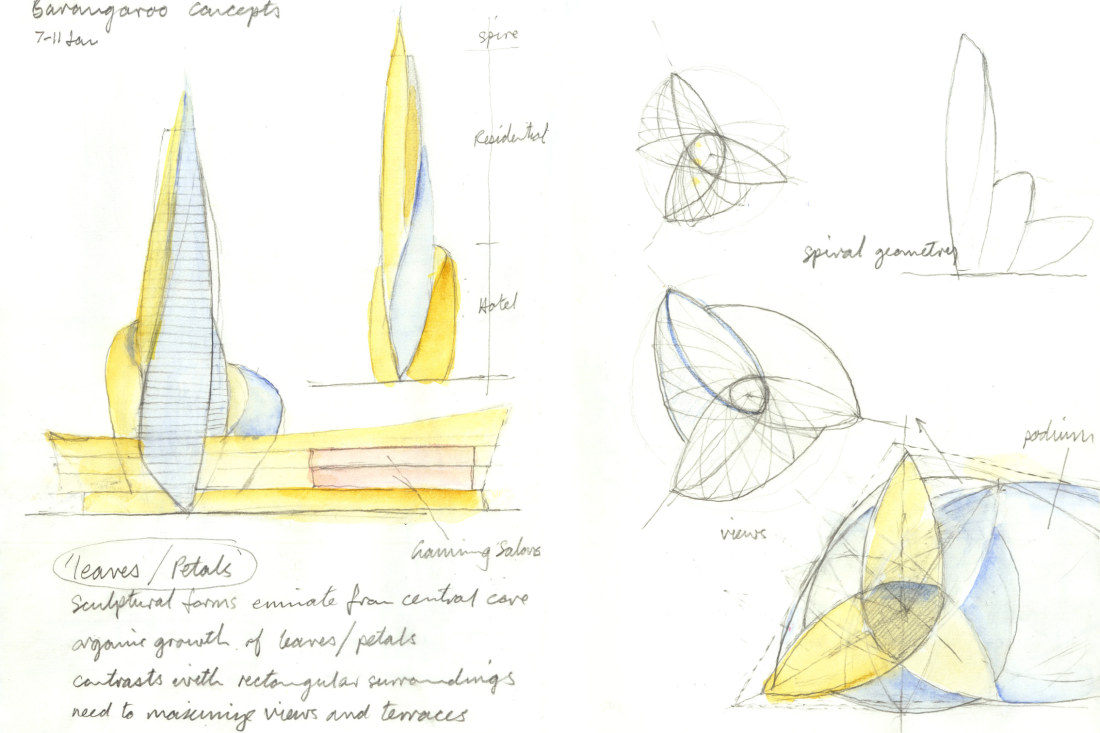 Barangaroo Concepts
7-11 Jan
spire
Residential
Hotel
Gaming Salons
'leaves / Petals'
Sculptural forms eminate from central core
organic growth of leaves/petals
contrasts with rectangular surroundings
need to maximise views and terraces
spiral geometry
views
podium